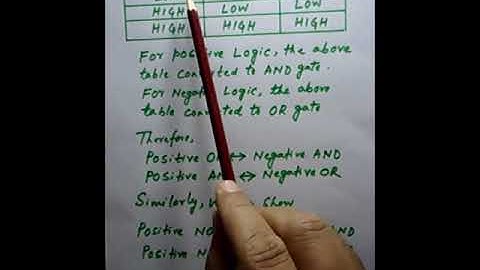 HIGH LOW LOW
HIGH HIGH HIGH
For positive Logic, the above
table converted to AND gate.
For Negative Logic, the above
table converted to OR gate
Therefore,
Positive OR ↔ Negative AND
Positive AND ↔ Negative OR
Similarly, Show
Positive AND
Positive